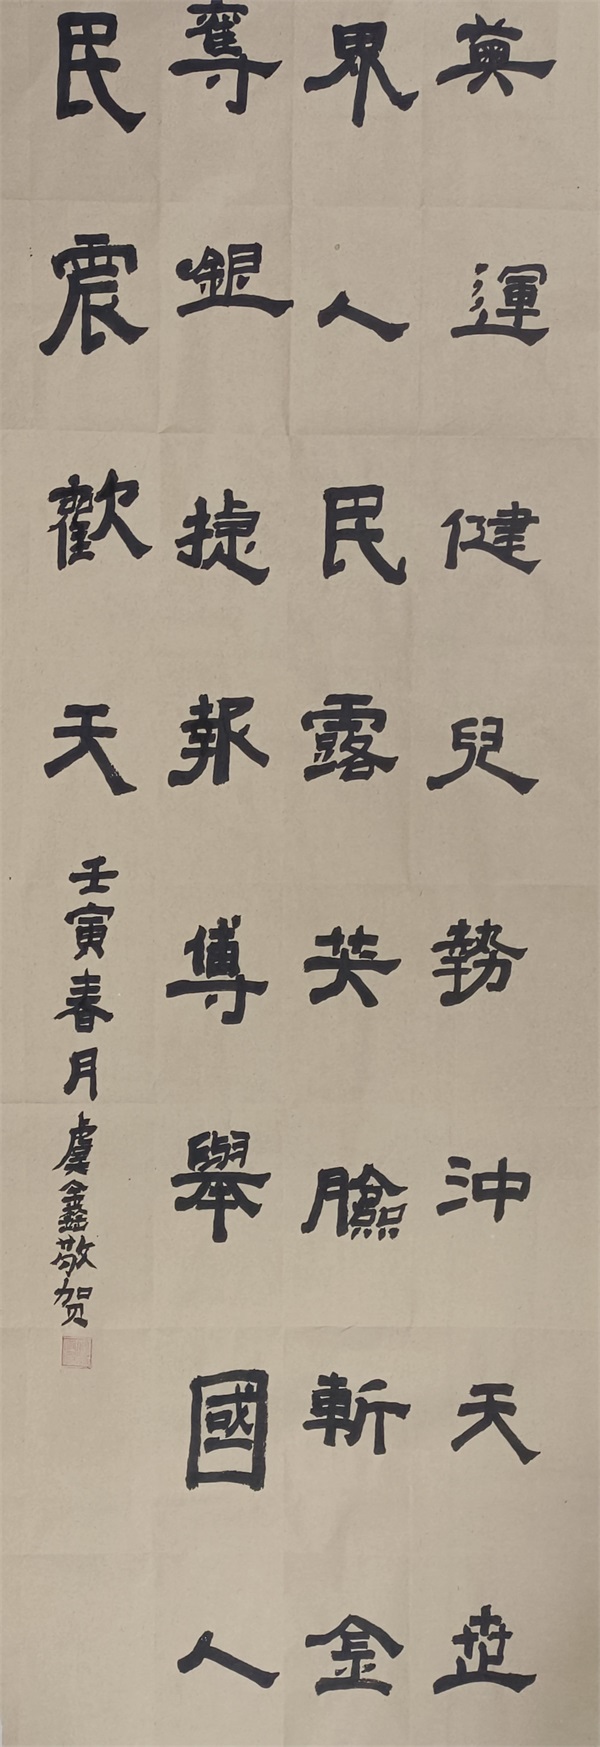 奧運健兒勢沖天世
界人民露笑臉斬金
奪銀捷報傳舉國人
民震歡天
壬寅春月虞鑫敬贺